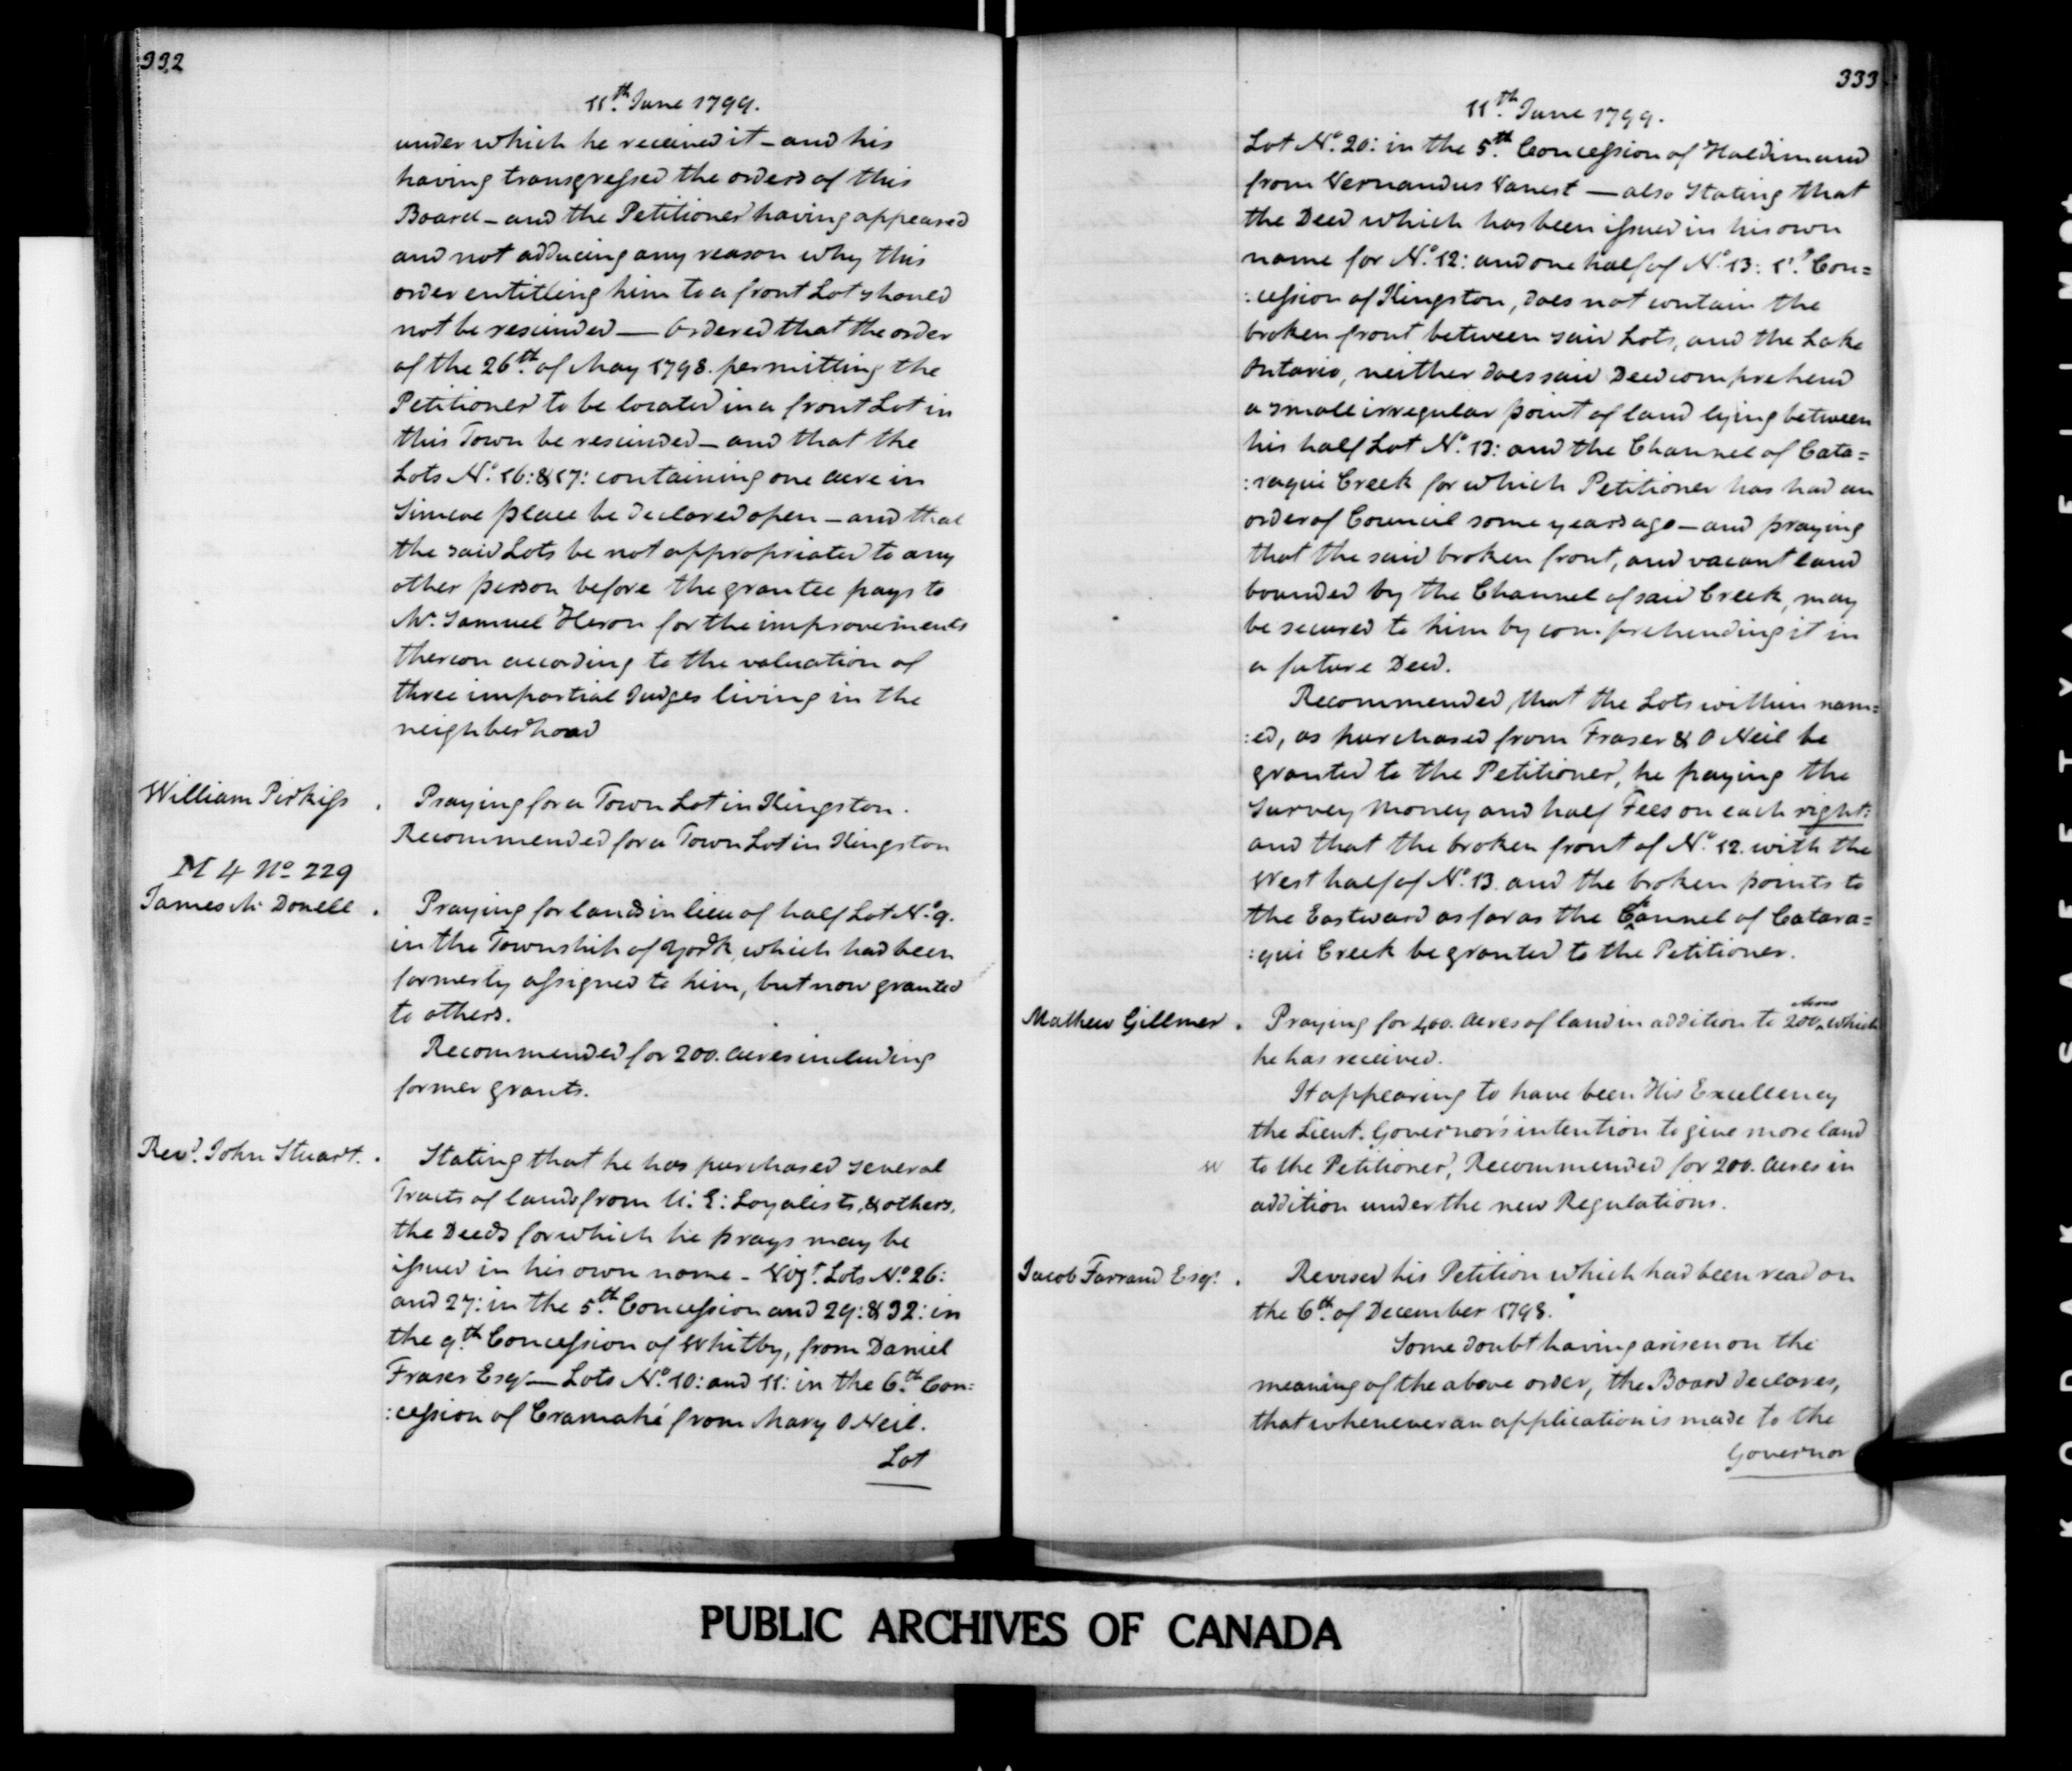 332
11th. June 1799.
under which he received it - and his
having transgressed the orders of this
Board - and the Petitioner having appeared
and not adducing any reason why this
order entitling him to a front Lot should
not be rescinded — Ordered that the order
of the 26th. of May 1798. permitting the
Petitioner to be located in a front Lot in
this Town be rescinded - and that the
Lots No. 16: & 17: containing one acre in
Simcoe place be declared open - and that
the said Lots be not appropriated to any
other person before the grantee pays to
Mr. Samuel Heron for the improvements
thereon according to the valuation of
three impartial Judges living in the
neighberhood
William Pirkiss . Praying for a Town Lot in Kingston.
Recommended for a Town Lot in Kingston
M 4 No. 229
James Mc Donell . Praying for lands in lieu of half Lot No. 9.
in the Township of York, which had been
formerly assigned to him, but now granted
to others.
Recommended for 200. Acres including
former grants.
Revd. John Stuart. . Stating that he has purchased several
Tracts of lands from U: E: Loyalists, & others,
the Deeds for which he prays may be
issued in his own name - Vizt. Lots No. 26:
and 27: in the 5th. Concession and 29: & 32: in
the 9th. Concession of Whitby, from Daniel
Fraser Esqr — Lots No. 10: and 11: in the 6th. Con:
:cession of Cramahé from Mary O Neil.
Lot
333
11th. June 1799.
Lot No. 20: in the 5th. Concession of Haldimand
from Vernandus Vanest — also Stating that
the Deed which has been issued in his own
name for No. 12: and one half of No. 13: 1st. Con=
:cession of Kingston, does not contain the
broken front between said Lots, and the Lake
Ontario, neither does said Deed comprehend
a small irregular point of land lying between
his half Lot No. 13: and the Channel of Cata=
:raqui Creek for which Petitioner has had an
order of Council some years ago - and praying
that the said broken front, and vacant land
bounded by the Channel of said Creek, may
be secured to him by comprehending it in
a future Deed.
Recommended, that the Lots within nam=
:ed, as purchased from Fraser & O Neil be
granted to the Petitioner, he paying the
Survey Money and half Fees on each right:
and that the broken front of No. 12. with the
West half of No. 13. and the broken points to
the Eastward as far as the Channel of Catara=
:qui Creek be granted to the Petitioner.
Mathew Gillmer . Praying for 400. Acres of land in addition to 200 Acres which
he has received.
It appearing to have been His Excellency
the Lieut. Governor's intention to give more land
to the Petitioner, Recommended for 200. Acres in
addition under the new Regulations.
Jacob Farrand Esqr. . Revised his Petition which had been read on
the 6th. of December 1798.
Some doubt having arisen on the
meaning of the above order, the Board declares,
that whenever an application is made to the
Governor
PUBLIC ARCHIVES OF CANADA